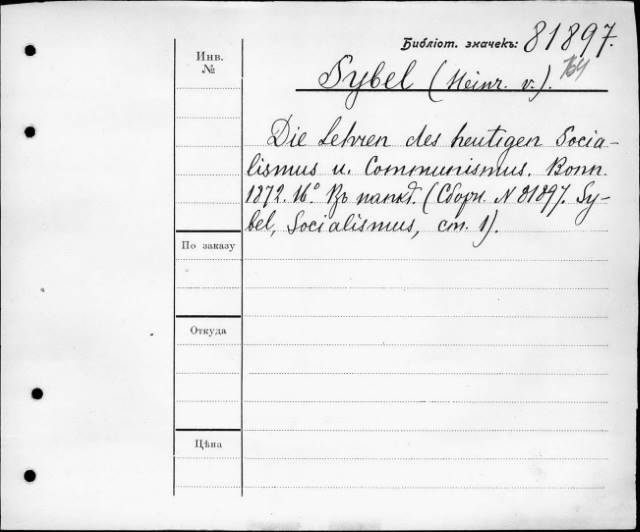 Библіот. значекъ: 81897.
Инв.
№
Sybel (Heinr. v.).
Die Lehren des heutigen Socia-
lismus u. Communismus. Bonn.
1872. 16°. Въ папкѣ. (Сборн. № 81897. Sy-
bel, Socialismus, ст. 1).
По заказу
Откуда
Цѣна